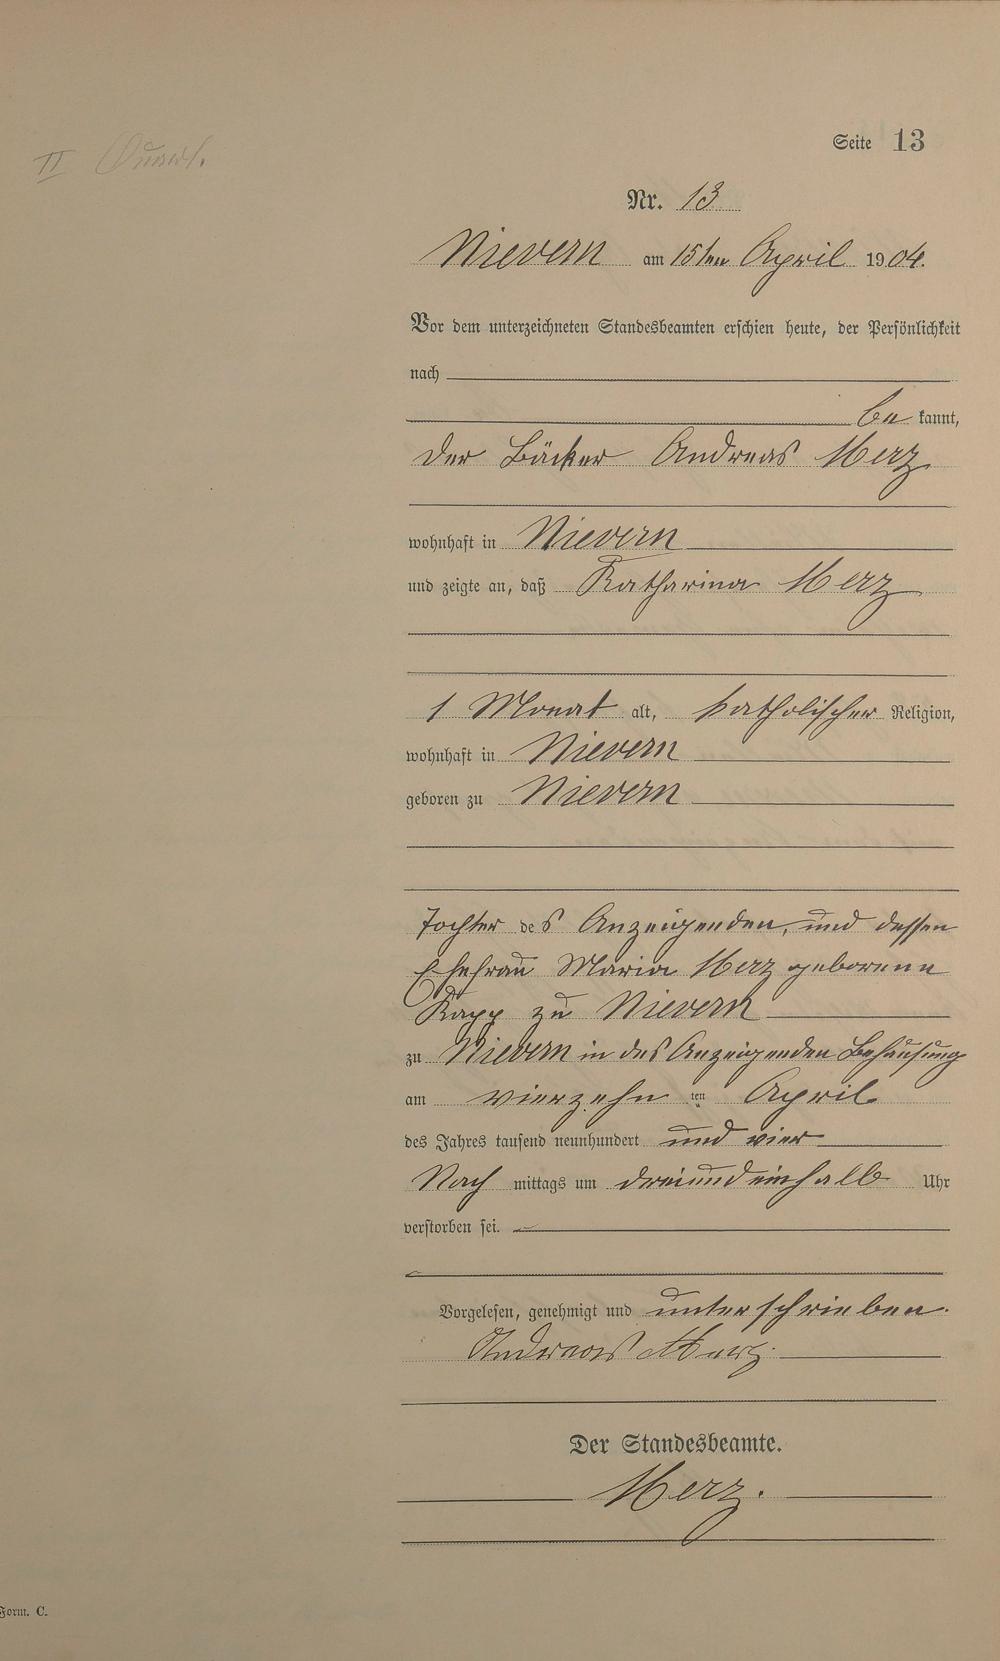 II Quart.
Seite 13
Nr. 13
Nievern am 15ten April 1904.
Vor dem unterzeichneten Standesbeamten erschien heute, der Persönlichkeit
nach
be kannt,
der Bäcker Andreas Merz
wohnhaft in Nievern
und zeigte an, daß Katharina Merz
1 Monat alt, katholischer Religion,
wohnhaft in Nievern
geboren zu Nievern
Tochter des Anzeigenden, und dessen
Ehefrau Maria Merz geborene
Kapp zu Nievern
zu Nievern in des Anzeigenden Behausung
am vierzehn ten April
des Jahres tausend neunhundert und vier
Nach mittags um dreiundeinhalb Uhr
verstorben sei.
Vorgelesen, genehmigt und unterschrieben.
Andreas Merz.
Der Standesbeamte.
Merz.
Form. C.